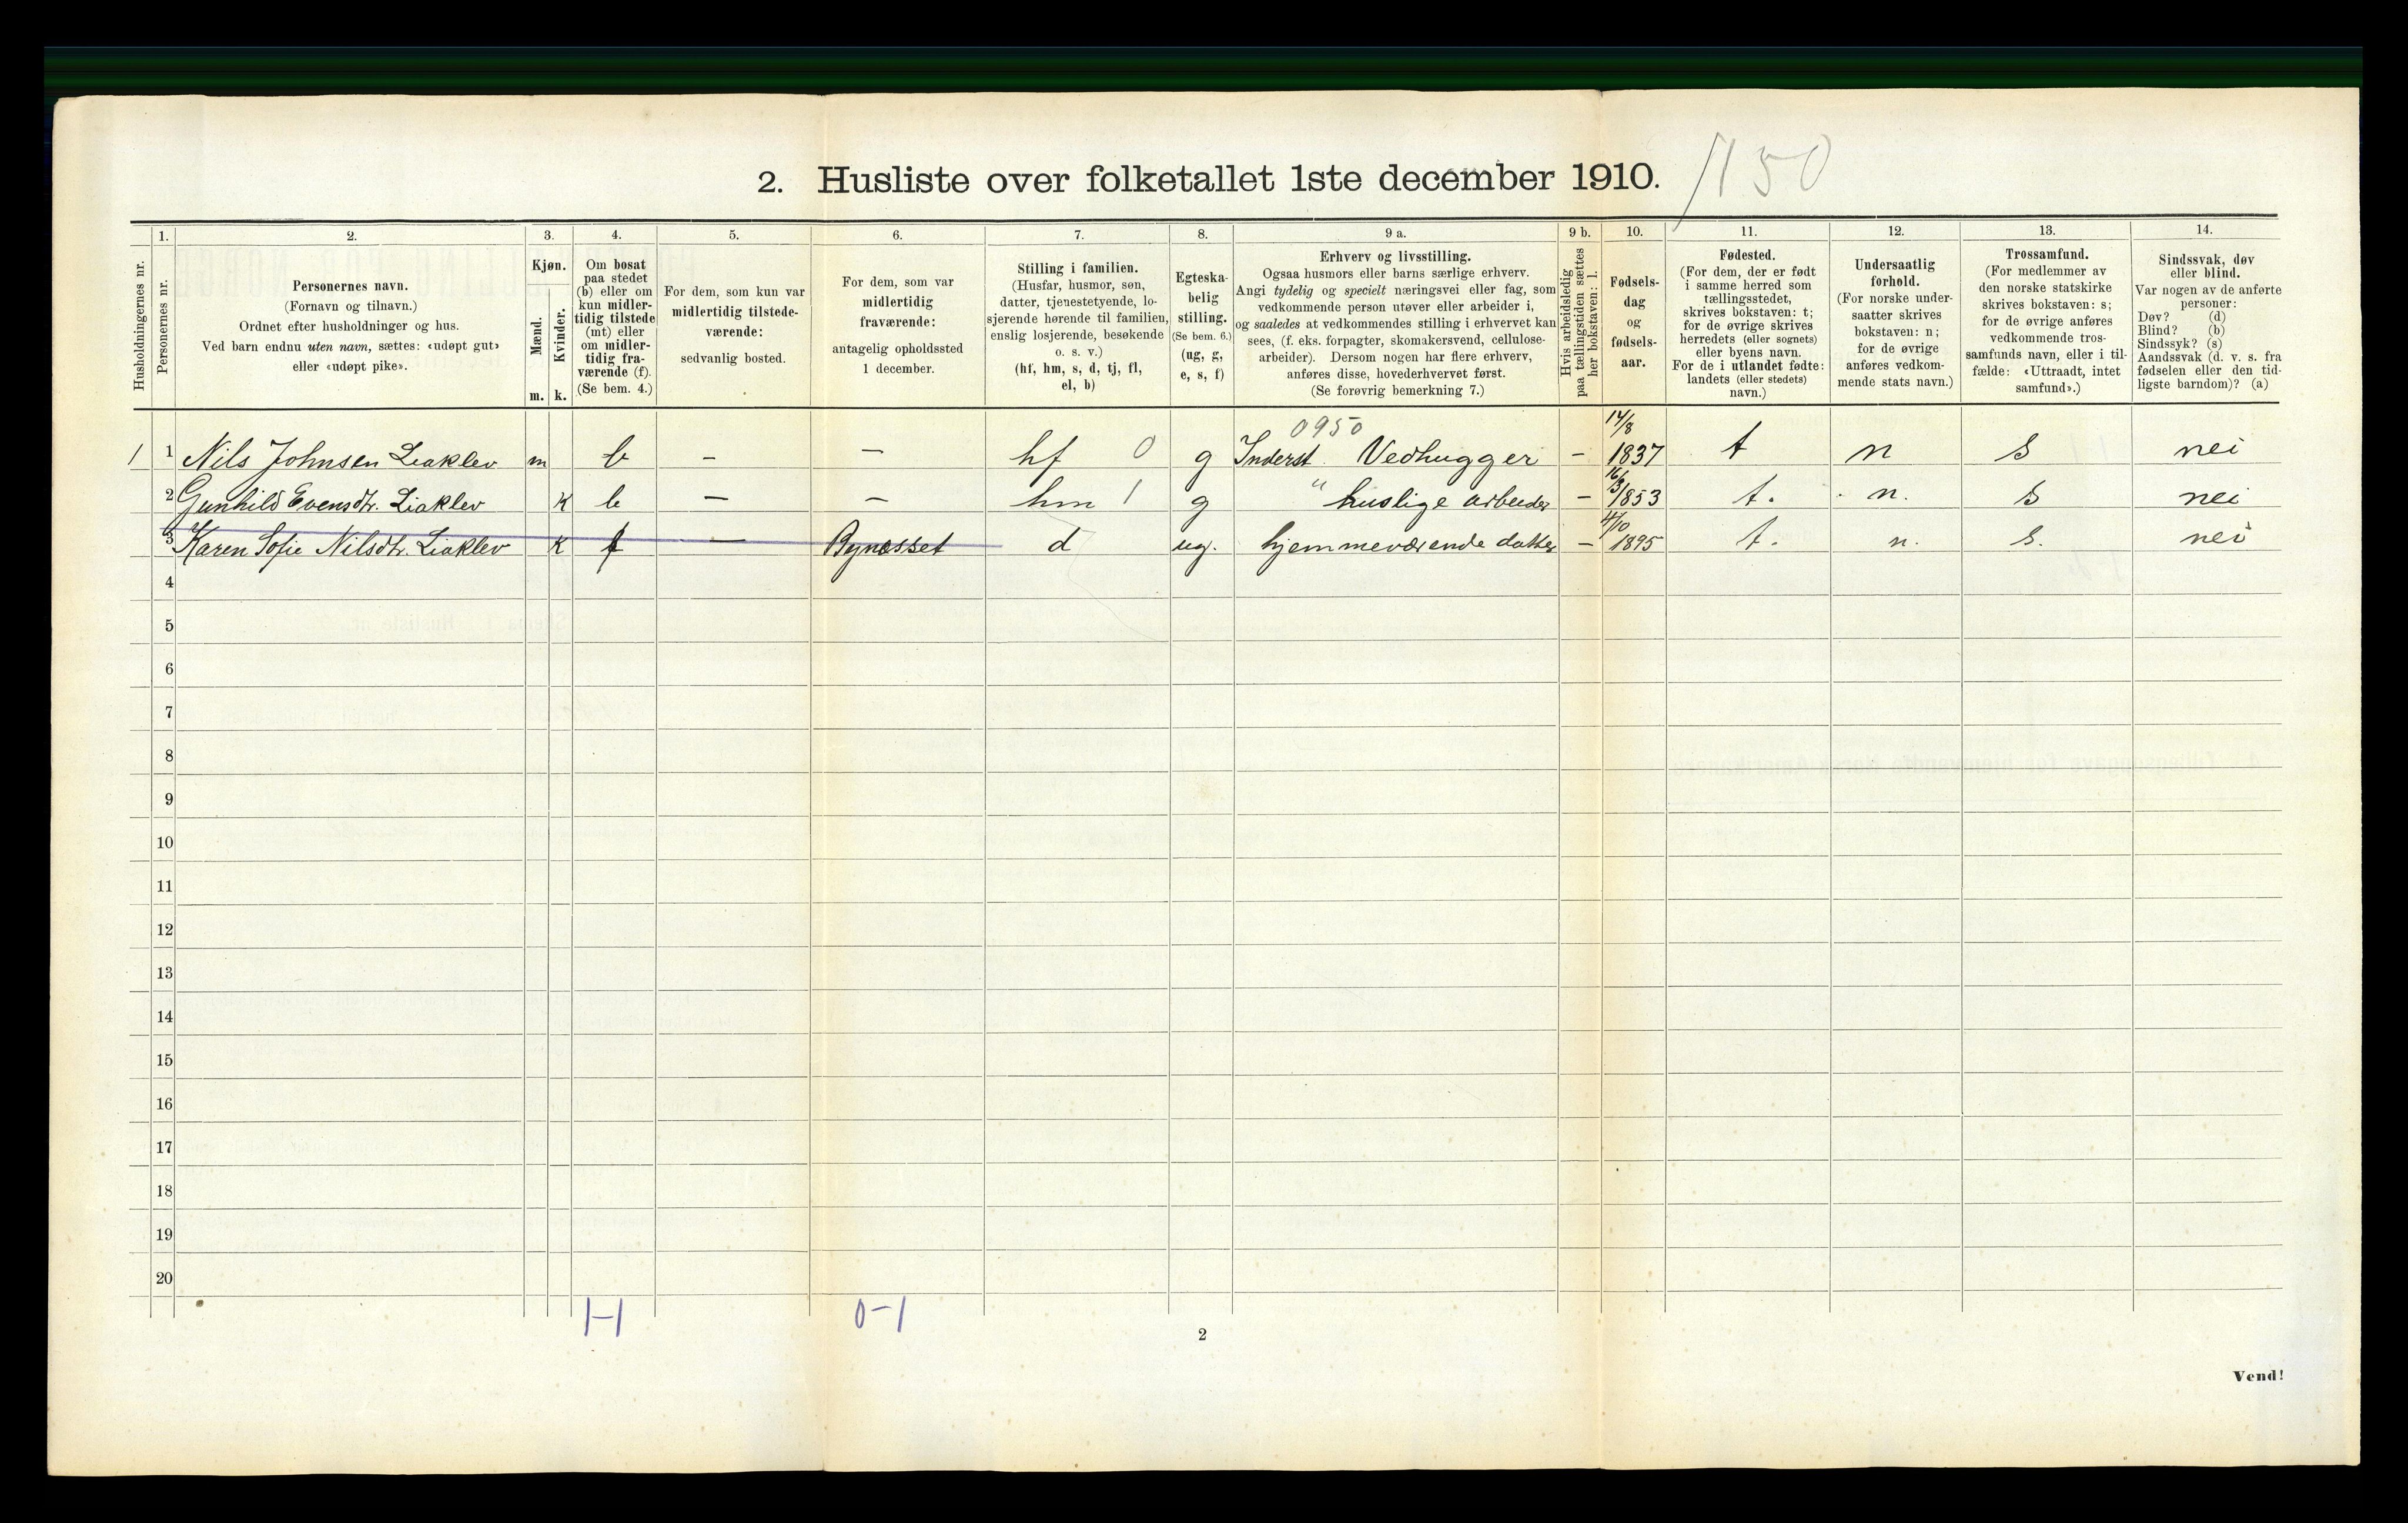 2. Husliste over folketallet 1ste december 1910. 150
Husholdningernes nr.
1.
Personernes nr.
2.
Personernes navn.
(Fornavn og tilnavn.)
Ordnet efter husholdninger og hus.
Ved barn endnu uten navn, sættes: «udøpt gut»
eller «udøpt pike».
3.
Kjøn.
Mænd.
Kvinder.
m. k.
4.
Om bosat
paa stedet
(b) eller om
kun midler-
tidig tilstede
(mt) eller
om midler-
tidig fra-
værende (f).
(Se bem. 4.)
5.
For dem, som kun var
midlertidig tilstede-
værende:
sedvanlig bosted.
6.
For dem, som var
midlertidig
fraværende:
antagelig opholdssted
1 december.
7.
Stilling i familien.
(Husfar, husmor, søn,
datter, tjenestetyende, lo-
sjerende hørende til familien,
enslig losjerende, besøkende
o. s. v.)
(hf, hm, s, d, tj, fl,
el, b)
8.
Egteska-
belig
stilling.
(Se bem. 6.)
(ug, g,
e, s, f)
9 a.
Erhverv og livsstilling.
Ogsaa husmors eller barns særlige erhverv.
Angi tydelig og specielt næringsvei eller fag, som
vedkommende person utøver eller arbeider i,
og saaledes at vedkommendes stilling i erhvervet kan
sees, (f. eks. forpagter, skomakersvend, cellulose-
arbeider). Dersom nogen har flere erhverv,
anføres disse, hovederhvervet først.
(Se forøvrig bemerkning 7.)
9 b.
Hvis arbeidsledig
paa tællingstiden sættes
her bokstaven: l.
10.
Fødsels-
dag
og
fødsels-
aar.
11.
Fødested.
(For dem, der er født
i samme herred som
tællingsstedet,
skrives bokstaven: t;
for de øvrige skrives
herredets (eller sognets)
eller byens navn.
For de i utlandet fødte:
landets (eller stedets)
navn.)
12.
Undersaatlig
forhold.
(For norske under-
saatter skrives
bokstaven: n;
for de øvrige
anføres vedkom-
mende stats navn.)
13.
Trossamfund.
(For medlemmer av
den norske statskirke
skrives bokstaven: s;
for de øvrige anføres
vedkommende tros-
samfunds navn, eller i til-
fælde: «Uttraadt, intet
samfund».)
14.
Sindssvak, døv
eller blind.
Var nogen av de anførte
personer:
Døv? (d)
Blind? (b)
Sindssyk? (s)
Aandssvak (d. v. s. fra
fødselen eller den tid-
ligste barndom)? (a)
0950 14/8
1 1 Nils Johnsen Liaklev m b – – hf 0 g Inderst. Vedhugger – 1837 t n s nei
2 Gunhild Evensdtr. Liaklev k b – – hm 1 g " huslige arbeider – 16/3 1853 t. n. s nei
3 Karen Sofie Nilsdtr. Liaklev k f — Bynesset d ug. hjemmeværende datter – 4/10 1895 t. n. s. nei
4
5
6
7
8
9
10
11
12
13
14
15
16
17
18
19
20
1–1 0–1
2
Vend!